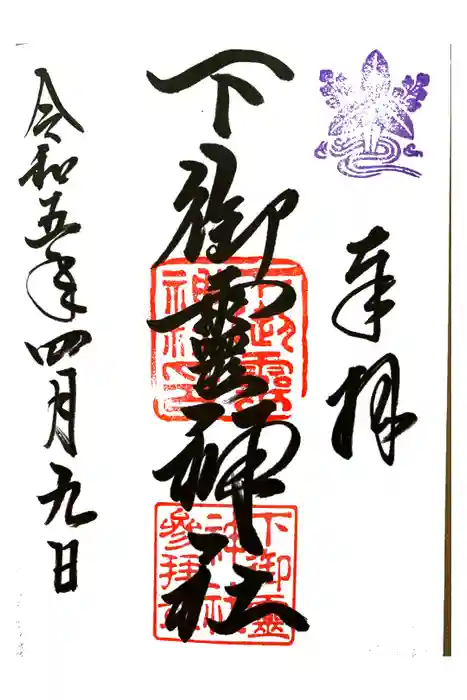 奉拝
下御靈神社
下御靈神社印
下御靈神社参拝
令和五年四月九日